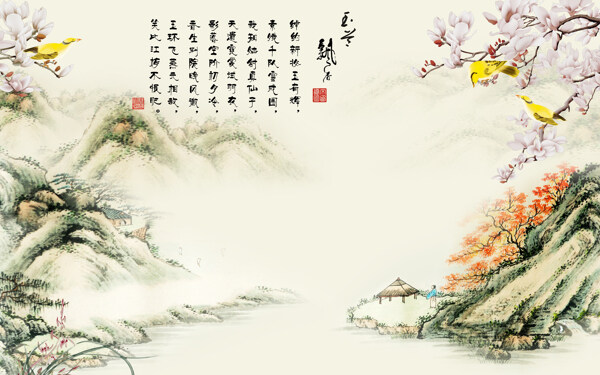 玉兰
飘香
绰约新妆玉有辉，
素娥千队雪成围，
我知姑射真仙子，
天遣霓裳试羽衣，
影落空阶初月冷，
香生别院晚风微，
玉环飞燕元相敌，
笑比江梅不恨肥。